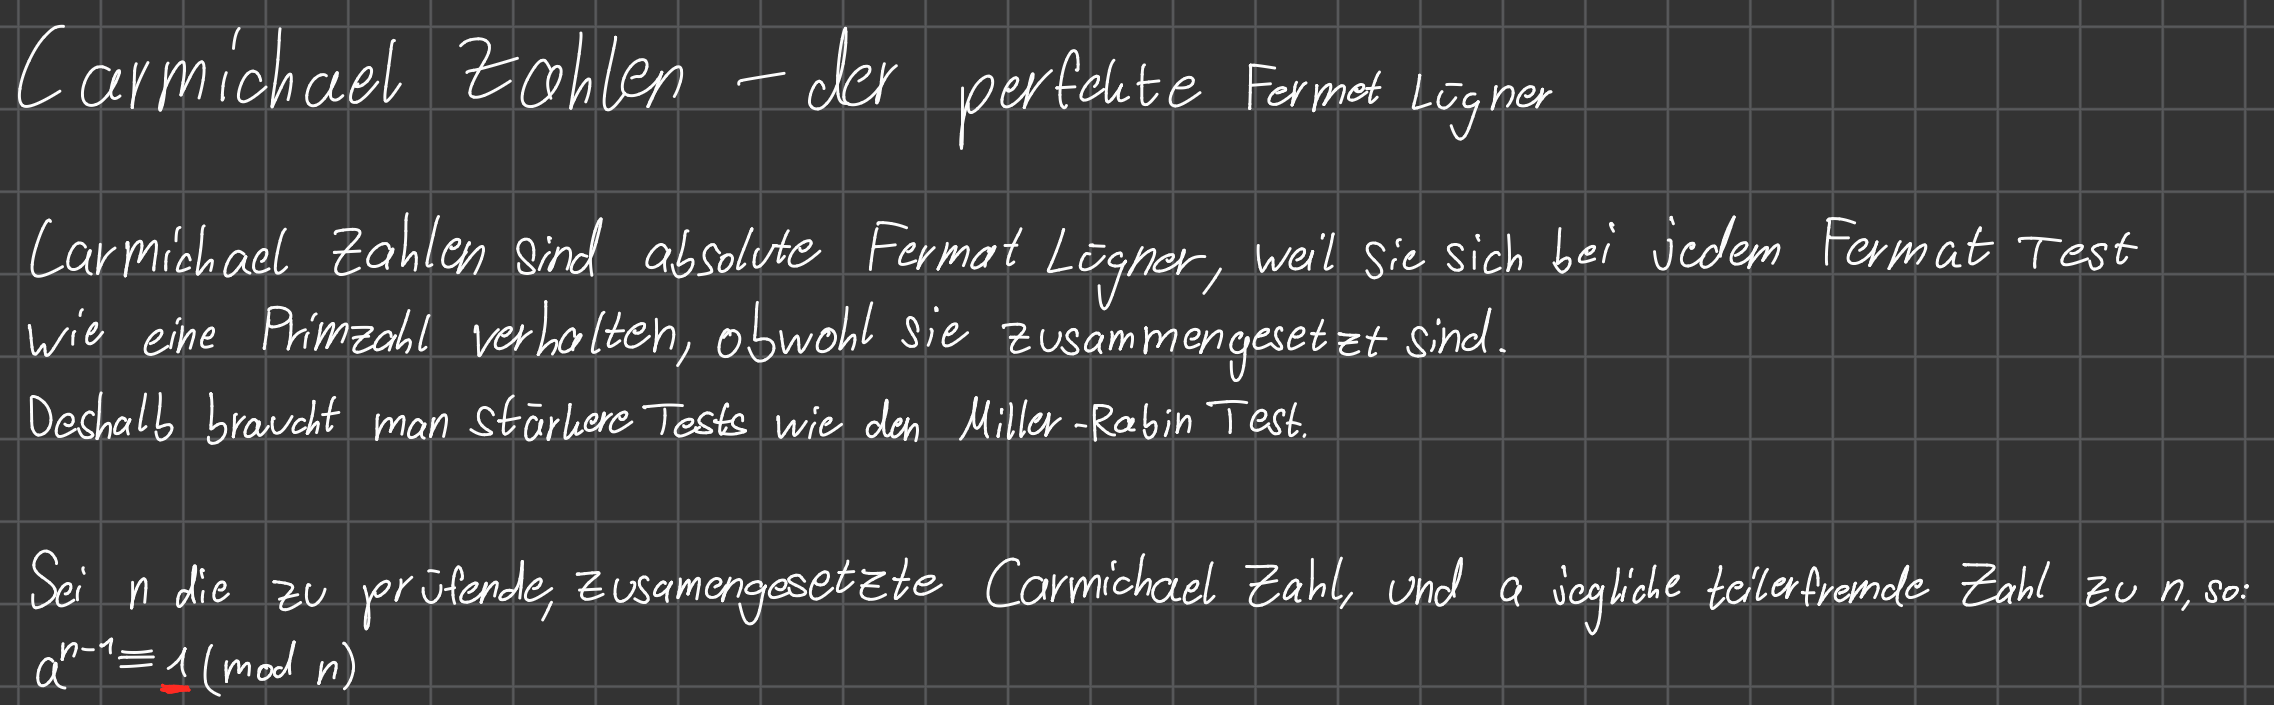 Carmichael Zahlen - der perfekte Fermat Lügner
Carmichael Zahlen sind absolute Fermat Lügner, weil sie sich bei jedem Fermat Test
wie eine Primzahl verhalten, obwohl sie zusammengesetzt sind.
Deshalb braucht man stärkere Tests wie den Miller-Rabin Test.
Sei n die zu prüfende, zusamengesetzte Carmichael Zahl, und a jegliche teilerfremde Zahl zu n, so:
a^{n-1} ≡ 1 (mod n)